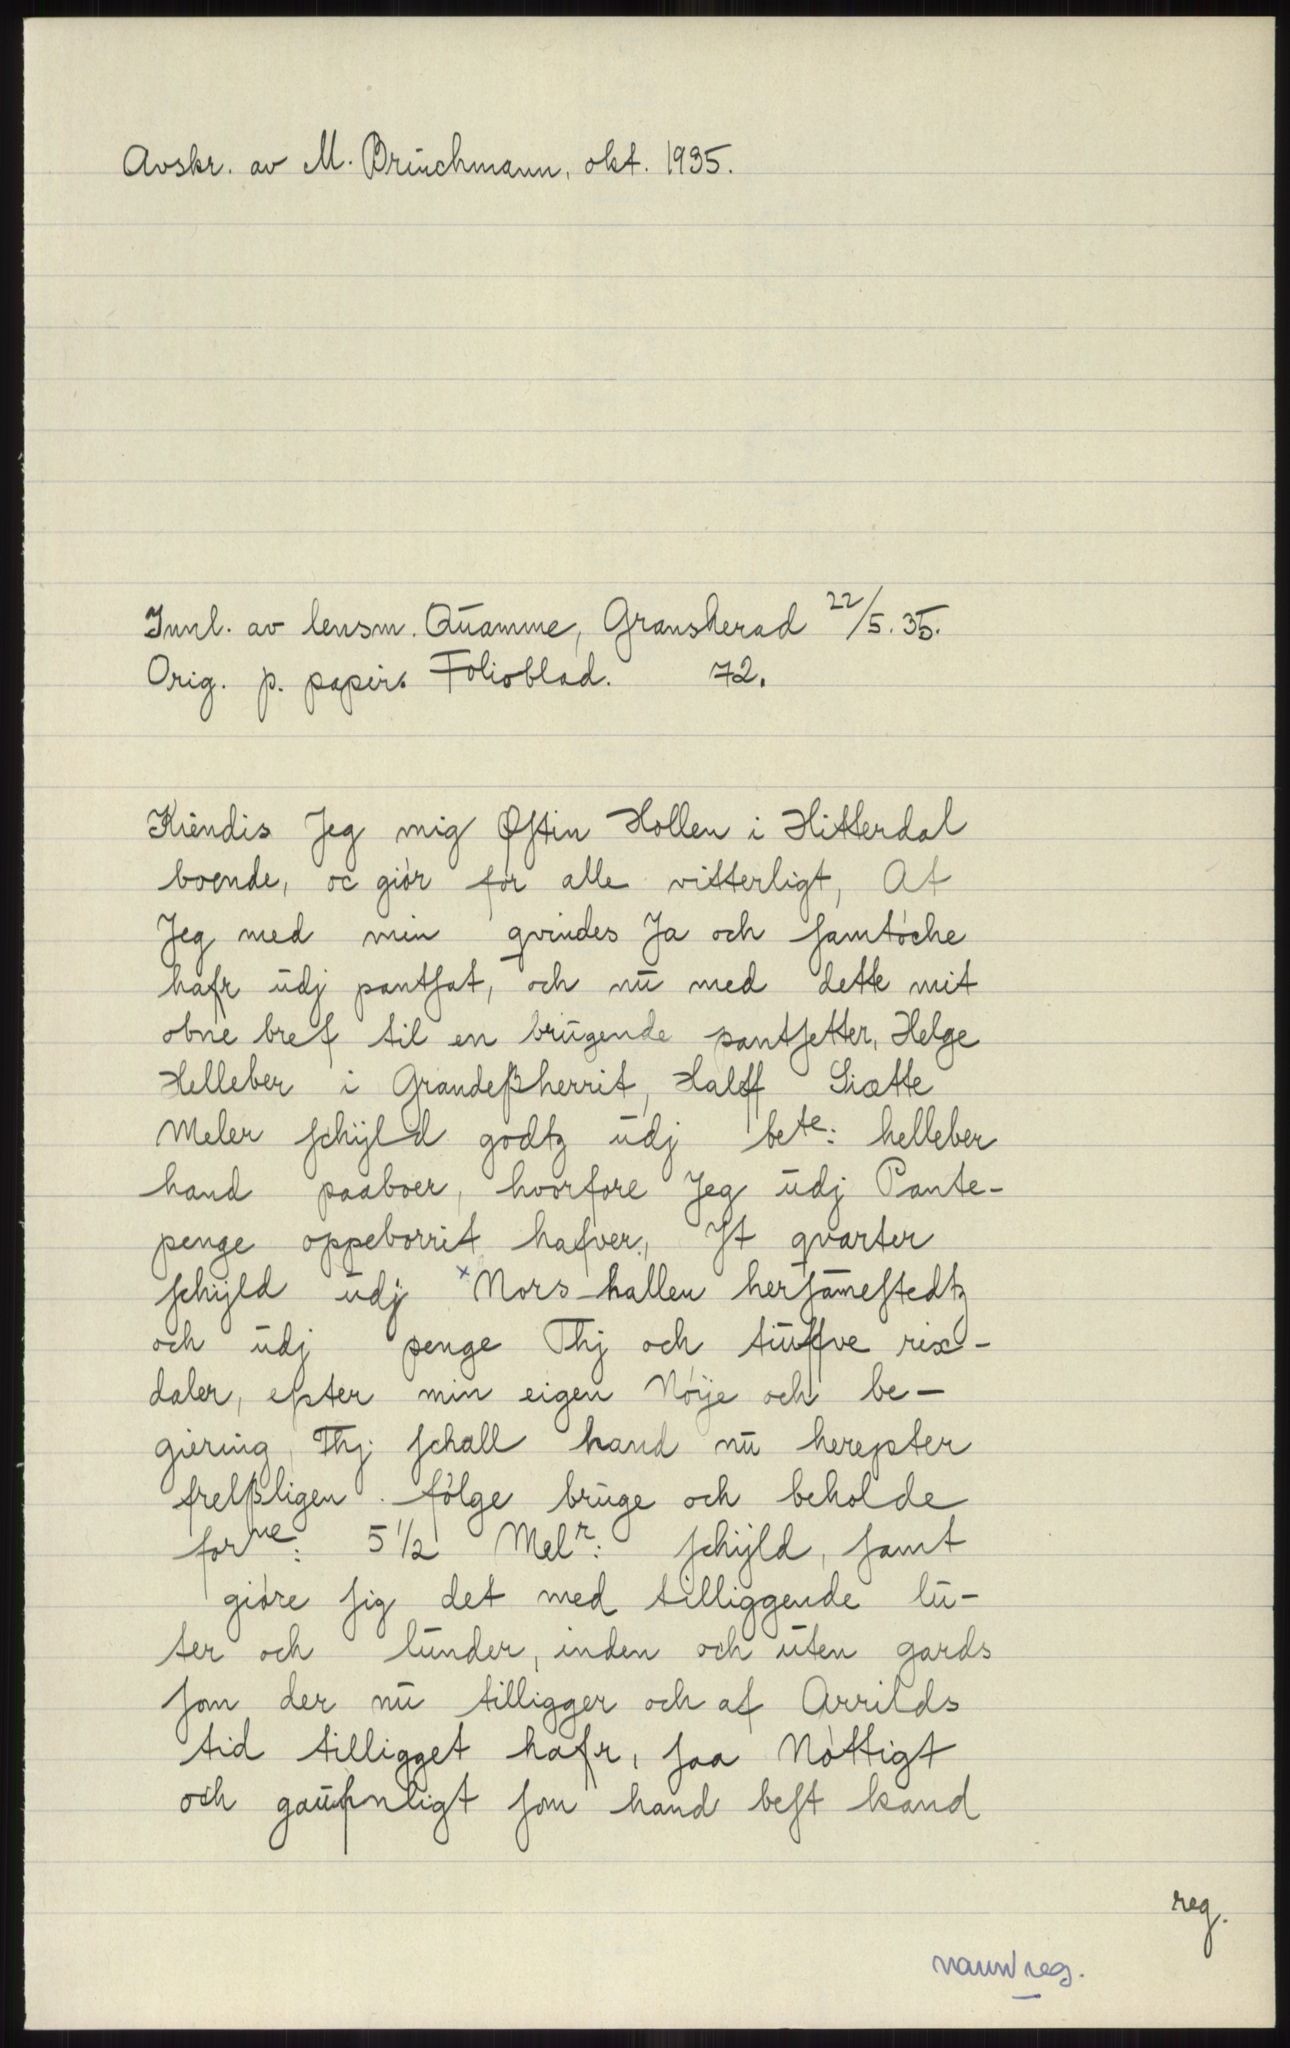 Avskr. av M. Bruchmann, okt. 1935.
Innl. av lensm. Quamme, Gransherad 22/5. 35.
Orig. p. papir. Folioblad. 72.
Kiendis Jeg mig Østin Hollen i Hitterdal
boende, oc giør for alle vitterligt, At
Jeg med min qvindes Ja och samtøche
hafr udj pantsat, och nu med dette mit
obne bref til en brugende pantsetter, Helge
Helleber i Grandeßherrit, Halff Siætte
Meler schÿld godtz udj bete: helleber
hand paaboer, hvorfore Jeg udj Pante-
penge oppeborrit hafver, It qvarter
schÿld udj x Nors-hallen hersamestedtz
och udj penge Thj och tuffve rix-
daler, efter min eigen Nøÿe och be-
giering, Thj schall hand nu herefter
frelßligen følge bruge och beholde
forne: 5 1/2 Melr: schÿld, samt
giøre sig det med tilliggende lu-
ter och lunder, inden och uten gards
som der nu tilligger och af Arrilds
tid tilligget hafr, saa Nøttigt
och gaufnligt som hand best kand
reg.
navnreg.